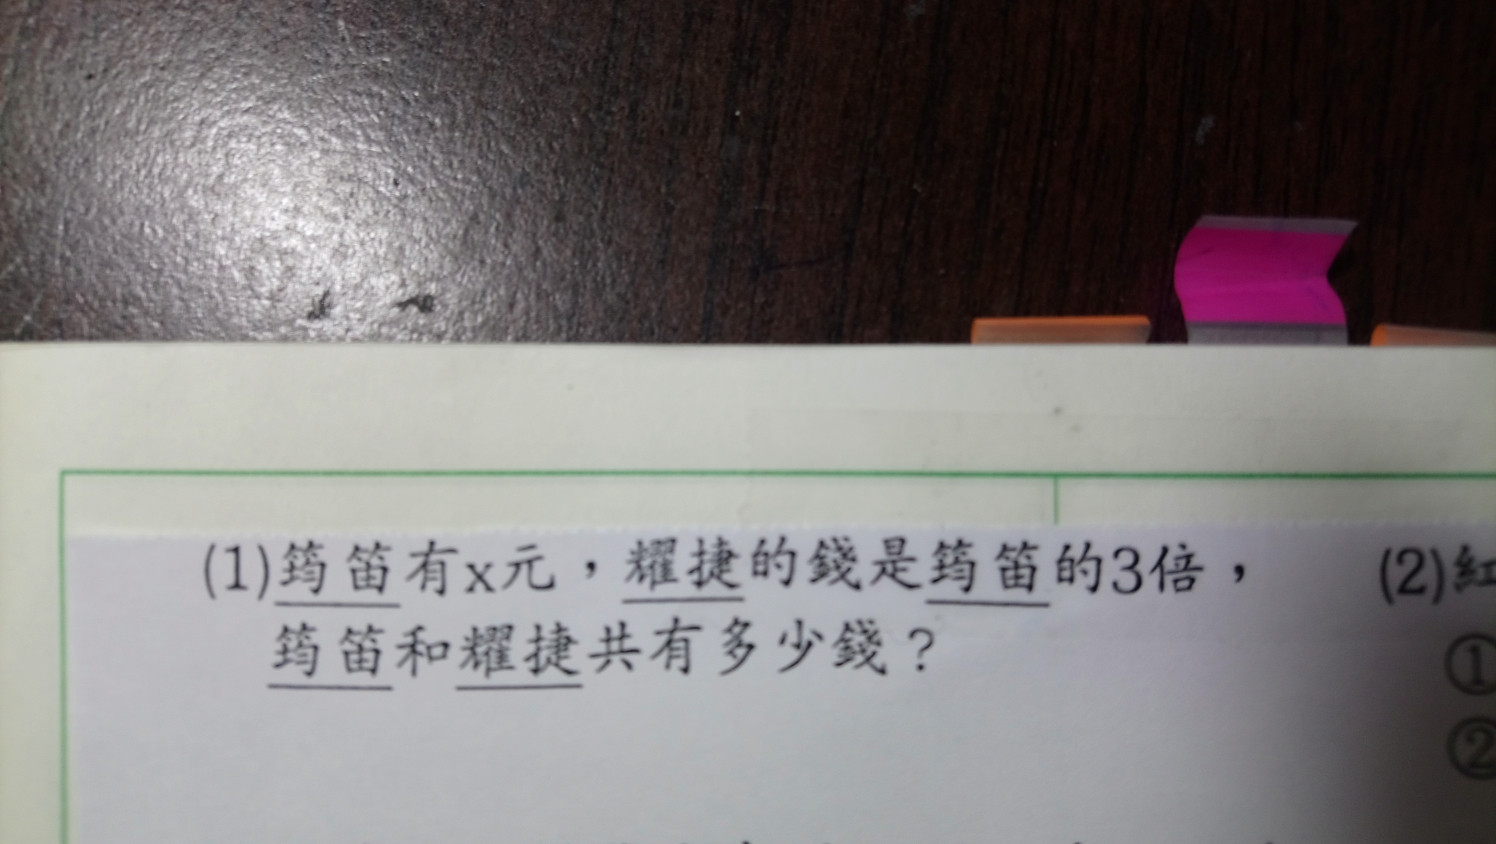 (1)筠笛有x元，耀捷的錢是筠笛的3倍，
筠笛和耀捷共有多少錢？
(2)紅
①
②